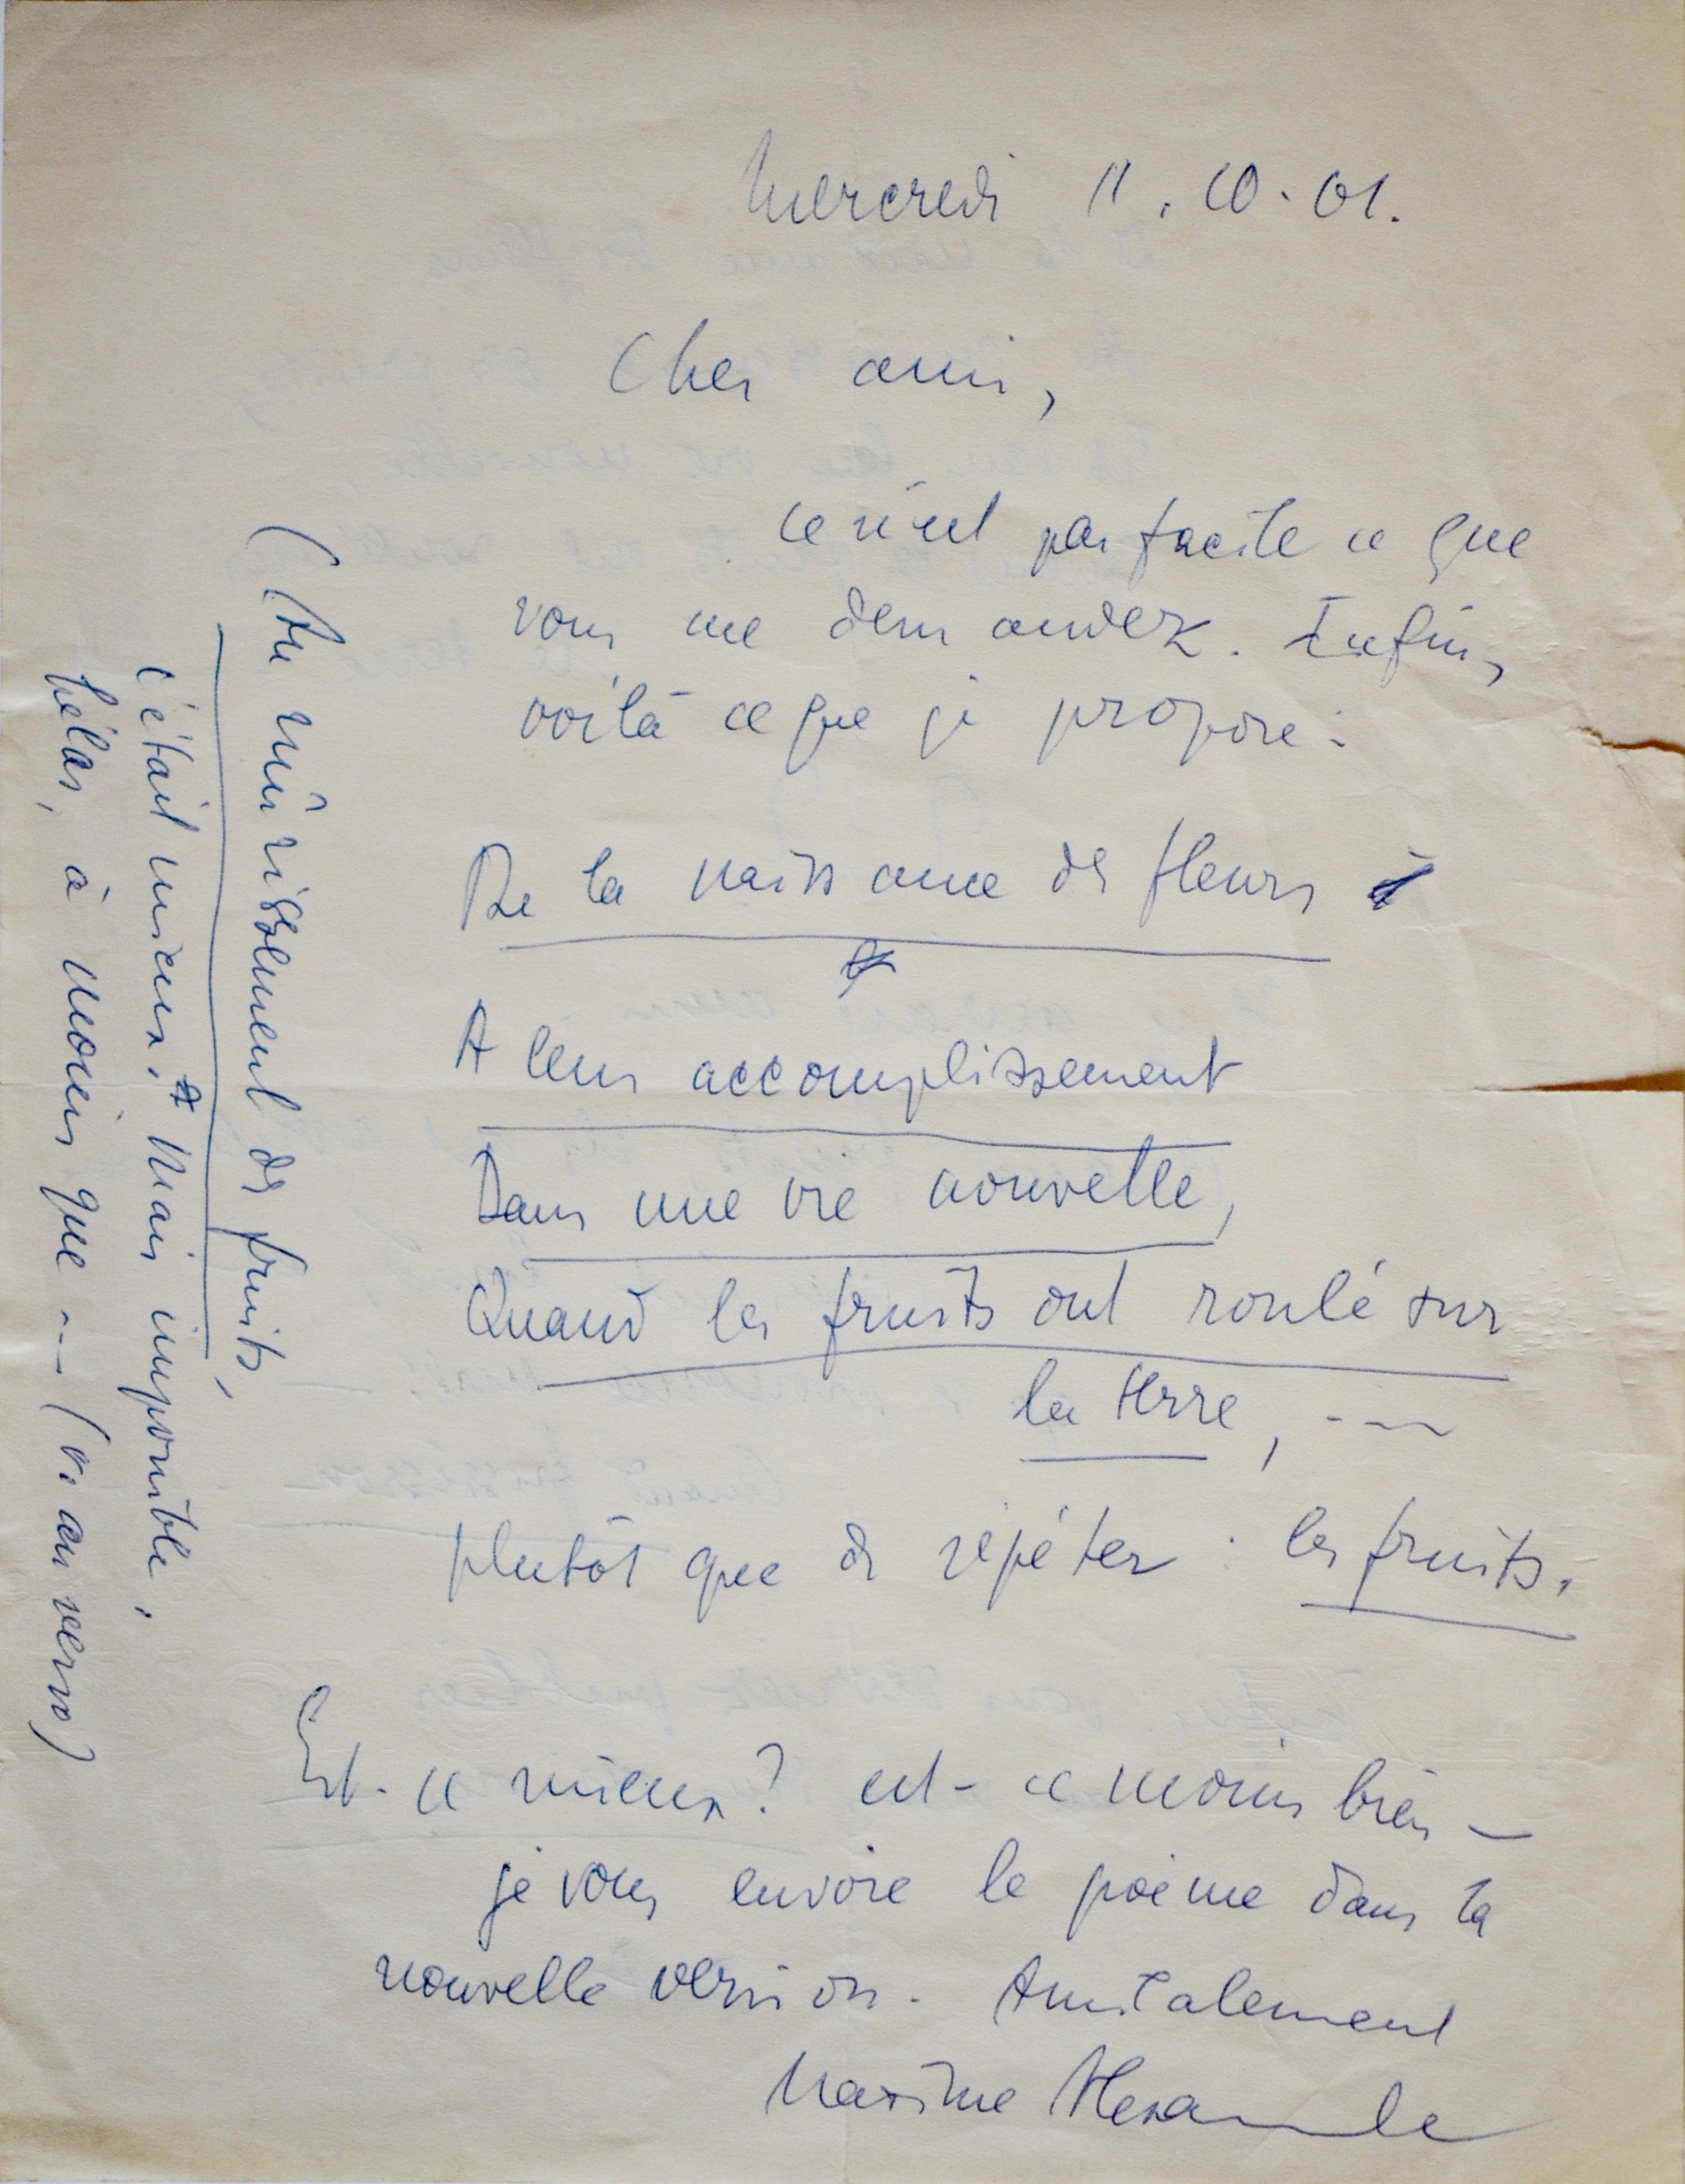 Mercredi 11.10.61.
Cher ami,
ce n'est pas facile ce que
vous me demandez. Enfin,
voilà ce que je propose :
De la naissance des fleurs
A leur accomplissement
Dans une vie nouvelle,
Quand les fruits ont roulé sur
la terre, ---
plutôt que de répéter : les fruits.
Est-ce mieux? est-ce moins bien —
je vous envoie le poème dans la
nouvelle version. Amicalement
Maxime Alexandre
(Au mûrissement des fruits,
c'était mieux. Mais impossible,
hélas, à moins que --- (v. au verso)